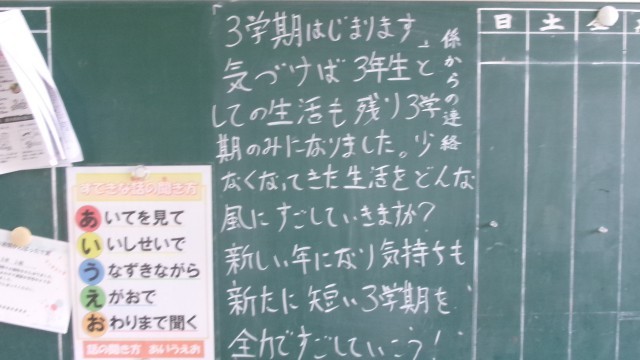 3学期はじまります
気づけば3年生と
しての生活も残り3学
期のみになりました。少
なくなってきた生活をどんな
風にすごしていきますか?
新しい年になり気持ちも
新たに短い3学期を
全力ですごしていこう!
係からの連絡
日 土 金
すてきな話の聞き方
あいてを見て
いいしせいで
うなずきながら
えがおで
おわりまで聞く
話の聞き方 あいうえお